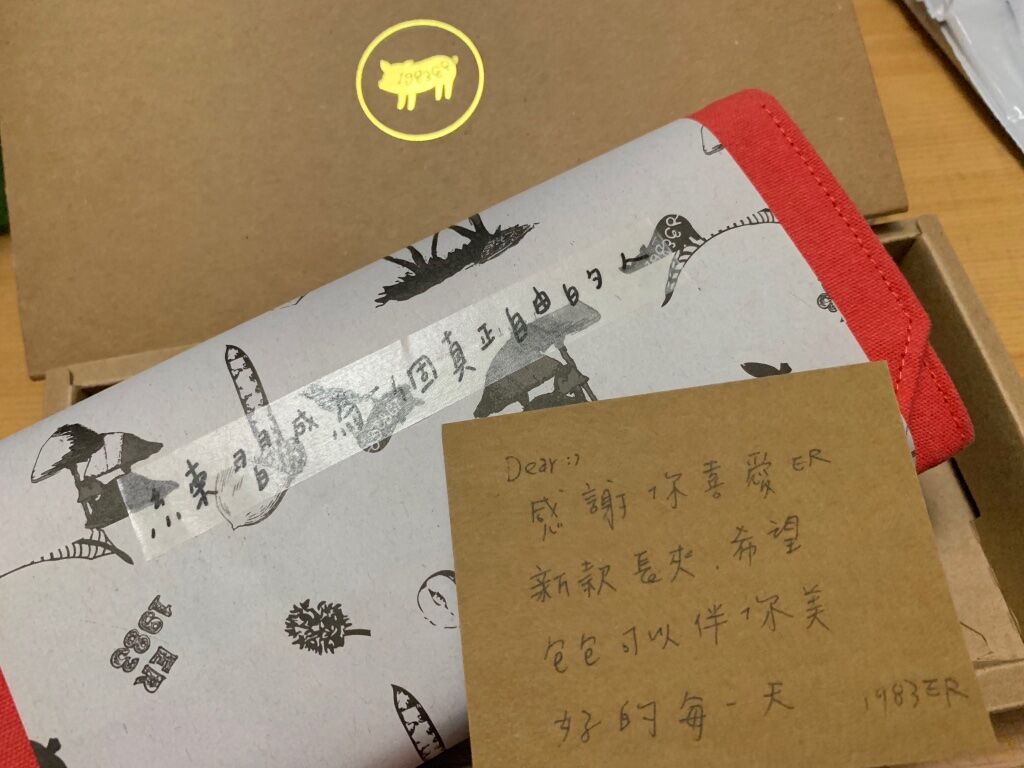 1983ER
練自己成為個真正自由的人
1983
ER
Dear:)
感謝你喜愛ER
新款長夾.希望
包包可以伴你美
好的每一天
1983ER